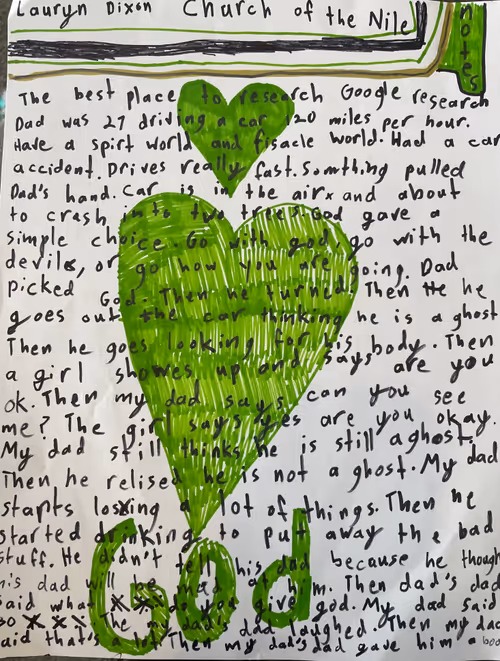 Lauryn Dixon Church of the Nile
notes
The best place to research Google research
Dad was 27 driving a car 120 miles per hour.
Have a spirt world and fisacle world. Had a car
accident. Drives really fast. Somthing pulled
Dad's hand. Car is in the air and about
to crash into two trees. God gave a
simple choice. Go with god, go with the
devil, or go how you are going. Dad
picked God. Then he turned. Then He he
goes out the car thinking he is a ghost
Then he goes looking for his body. Then
a girl showes up and says are you
ok. Then my dad says can you see
me? The girl says yes are you okay.
My dad still thinks he is still a ghost.
Then he relised he is not a ghost. My dad
starts losing a lot of things. Then he
started drinking to put away the bad
stuff. He didn't tell his dad because he though
his dad will be mad at him. Then dad's dad
said what do you give god. My dad said
50 The my dad's dad laughed. Then my dad
said that's a lot. Then my dad's dad gave him a boo
God